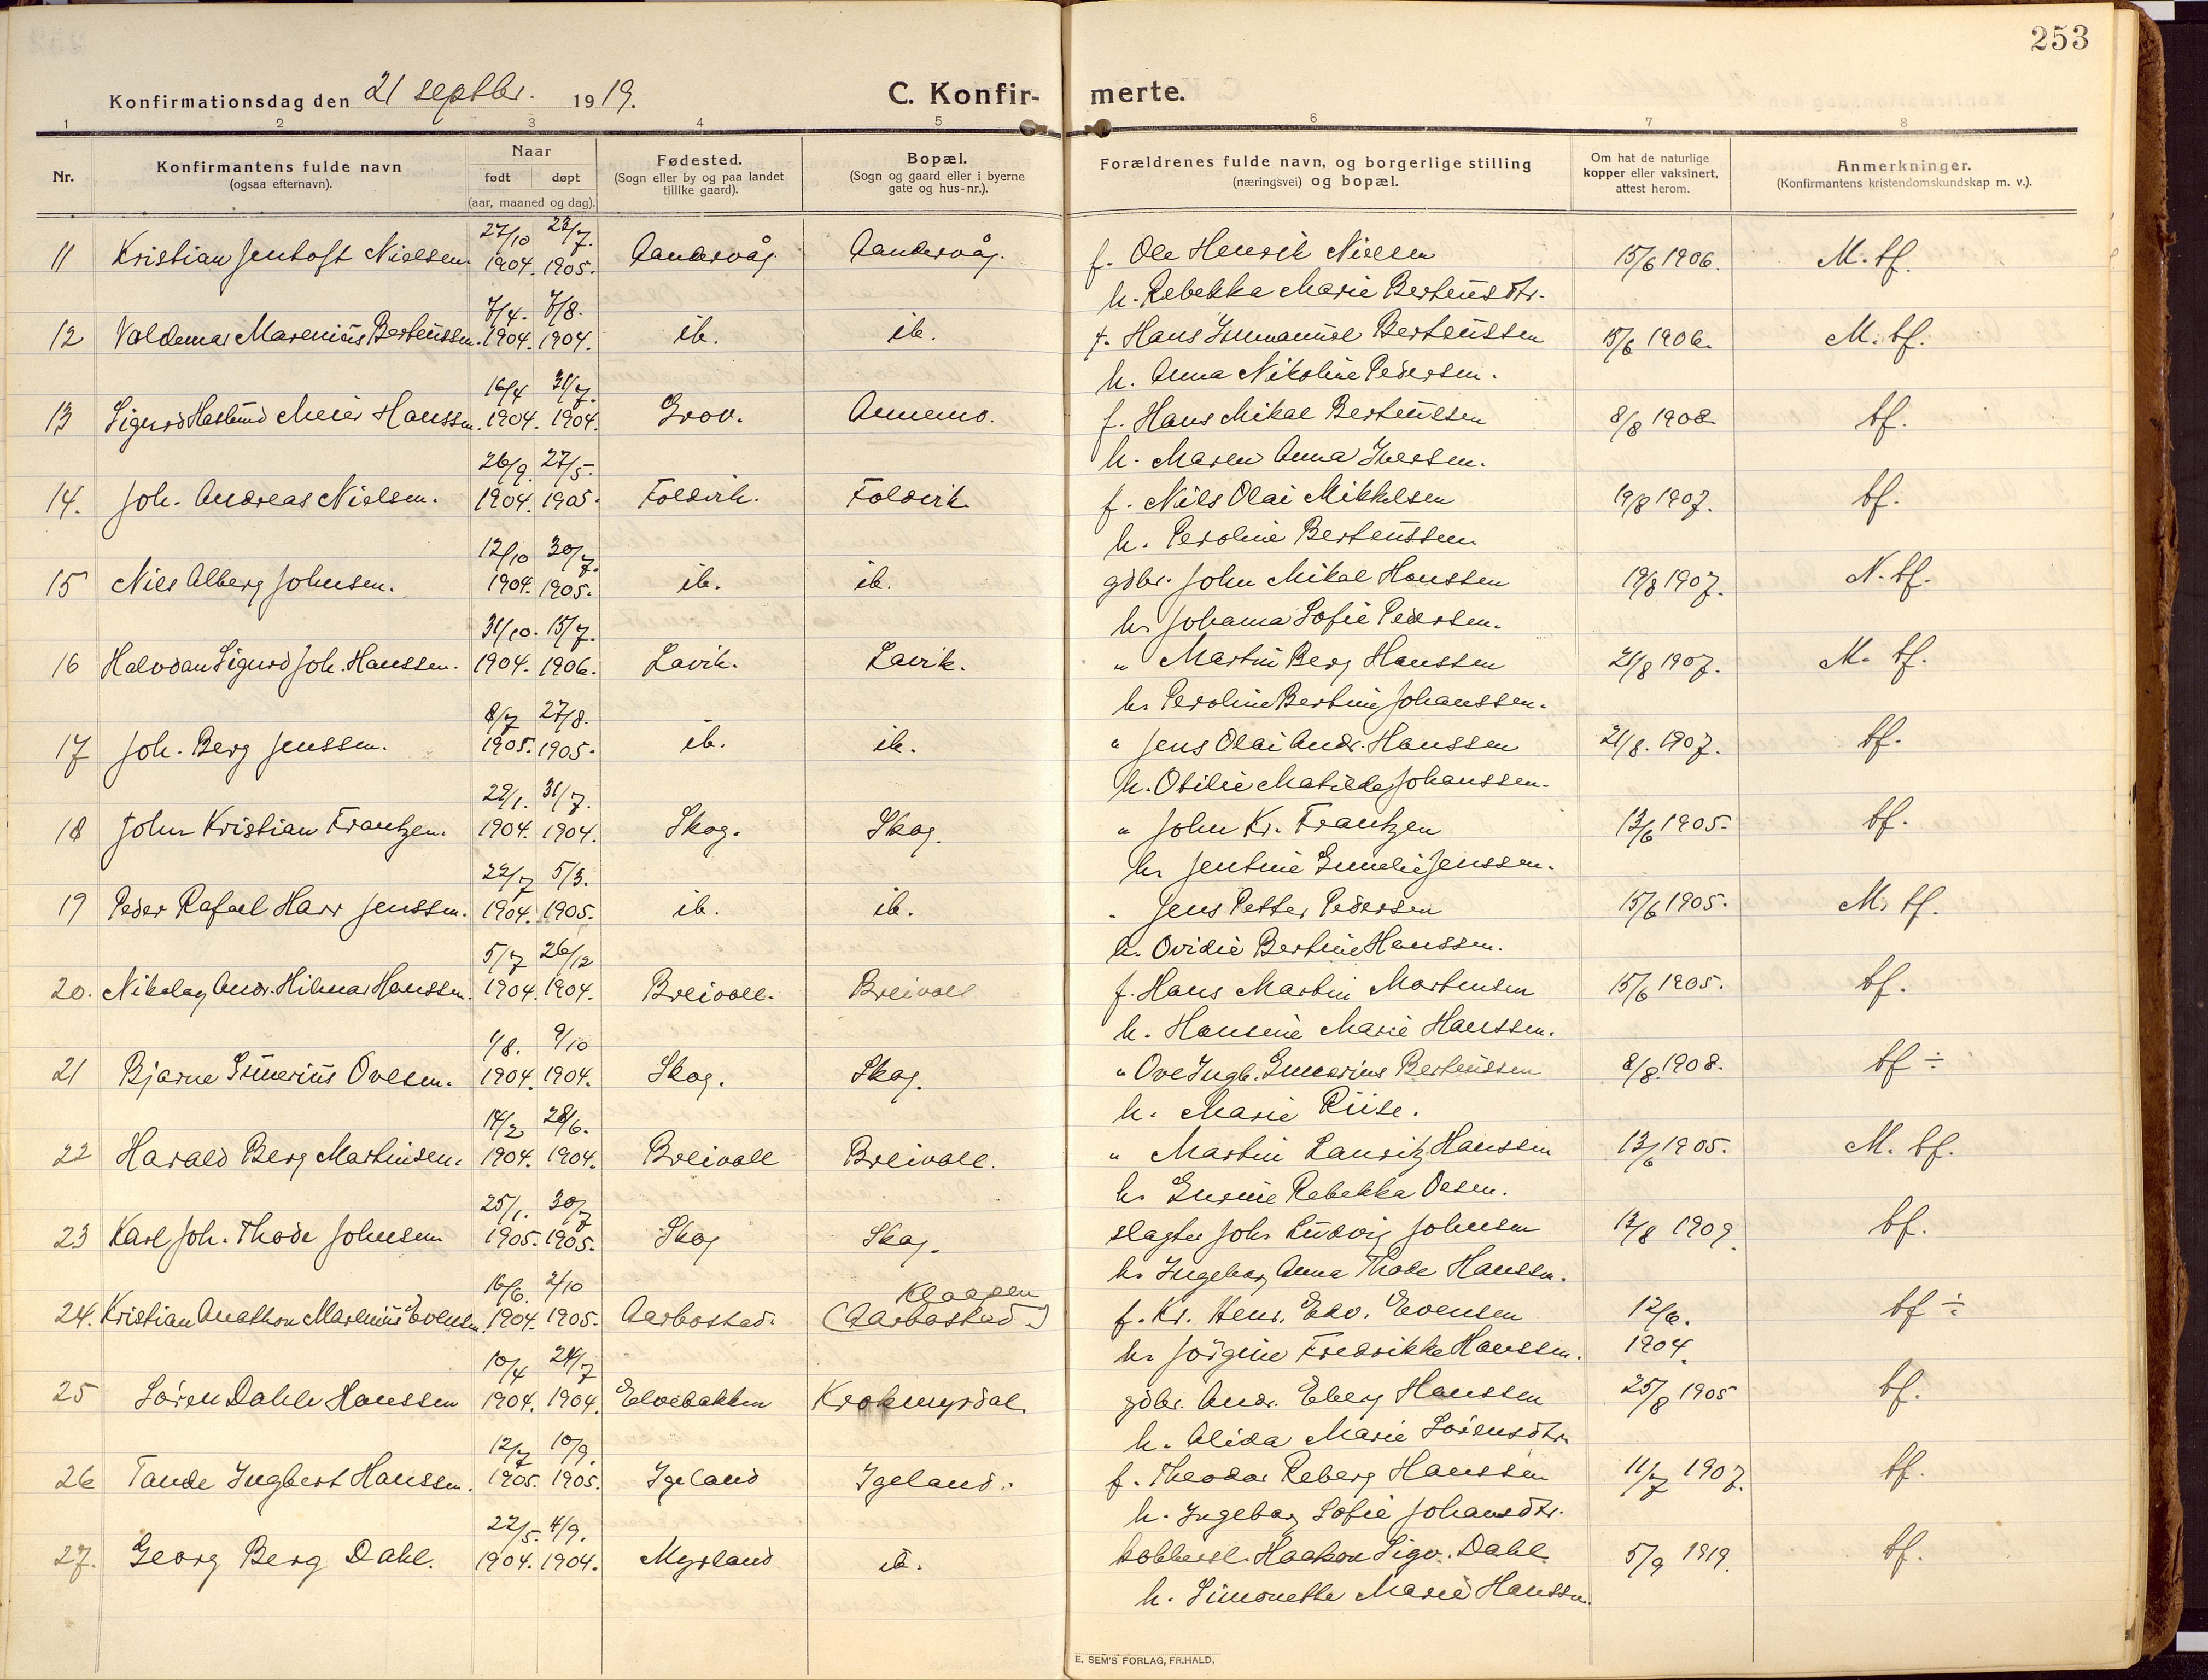 253
Konfirmationsdag den 21 septbr. 1919.
C. Konfirmerte.
1 2 3 4 5 6 7 8
Nr.
Konfirmantens fulde navn
(ogsaa efternavn).
Naar
født døpt
(aar, maaned og dag).
Fødested.
(Sogn eller by og paa landet
tillike gaard).
Bopæl.
(Sogn og gaard eller i byerne
gate og hus-nr.).
Forældrenes fulde navn, og borgerlige stilling
(næringsvei) og bopæl.
Om hat de naturlige
kopper eller vaksinert,
attest herom.
Anmerkninger.
(Konfirmantens kristendomskundskap m. v.).
27/10 23/7.
11 Kristian Jentoft Nielsen. 1904. 1905. Aandervåg. Aandervåg. f. Ole Henrik Nielsen 15/6 1906. M. tf.
h. Rebekka Marie Berteusdtr.
7/4. 7/8.
12 Valdemar Marenius Berteussen. 1904. 1904. ib. ib. f. Hans Immanuel Berteussen 15/6 1906. M. tf.
h. Anna Nikoline Pedersen.
16/4 31/7.
13 Sigurd Haslund Meier Hanssen. 1904. 1904. Grov. Annemo. f. Hans Mikal Berteussen 8/8 1908 tf.
h. Maren Anna Iversen.
26/9. 27/5.
14. Joh. Andreas Nielsen. 1904. 1905. Foldvik. Foldvik f. Nils Olai Mikkelsen 19/8 1907. tf.
h. Peroline Berteussen
12/10 30/7.
15 Nils Alberg Johnsen. 1904. 1905. ib. ib. gdbr. John Mikal Hanssen 19/8 1907. N. tf.
h. Johanna Sofie Pedersen.
31/10. 15/7.
16 Halvdan Sigurd Joh. Hanssen. 1904. 1906. Lavik. Lavik. " Martin Berg Hanssen 21/8 1907. M. tf.
h. Peroline Bertine Johanssen.
8/7 27/8.
17 Joh. Berg Jenssen. 1905. 1905. ib. ib. " Jens Olai Andr. Hanssen 21/8. 1907. tf.
h. Otilie Matilde Johanssen.
22/1. 31/7.
18 John Kristian Frantzen. 1904. 1904. Skog. Skog. " John Kr. Frantzen 13/6 1905. tf.
h. Jentine Emelie Jenssen.
22/7 5/3.
19 Peder Rafael Harr Jenssen. 1904. 1905. ib. ib. " Jens Petter Pedersen 15/6 1905. M. tf.
h. Ovidie Bertine Hanssen.
5/7 26/12
20. Nikolay Andr. Hilmar Hanssen. 1904. 1904. Breivoll. Breivoll f. Hans Martin Mortensen 15/6 1905. tf.
h. Hansine Marie Hanssen.
1/8. 9/10
21 Bjarne Emerius Ovesen. 1904. 1904. Skog. Skog. " Ove Ingb. Emerius Berteussen 8/8. 1908. tf ÷
h. Marie Riise.
14/2 28/6.
22 Harald Berg Martinsen. 1904. 1904. Breivoll Breivoll. " Martin Lauritz Hanssen 13/6 1905. M. tf.
h. Gurine Rebekka Oesen.
25/1. 30/7
23 Karl Joh. Thode Johnsen 1905. 1905. Skog Skog. slagter Joh. Ludvig Johnsen 12/8 1909. tf.
h. Ingeborg Anna Thode Hanssen.
16/6. 2/10 Kloppen
24. Kristian Anathon Marenius Evensen. 1904. 1905. Aarbostad. (Aarbostad.) f. Kr. Henr. Edv. Evensen 12/6. tf ÷
h. Jörgine Fredrikke Hanssen. 1904.
10/4 24/7
25 Sören Dahle Hanssen 1904. 1904. Elvebakken Krokmyrdal. gdbr. Andr. Eberg Hanssen 25/8 1905 tf.
h. Alida Marie Sörensdtr.
12/7 10/9.
26 Tande Ingbert Hanssen. 1905. 1905. Igeland Igeland. f. Theodor Reberg Hanssen 11/7 1907. tf.
h. Ingeborg Sofie Johansdtr.
22/5. 4/9.
27. Georg Berg Dahl. 1904. 1904. Myrland ib. Haakon Sigv. Dahl 5/9 1919. tf.
h. Simonette Marie Hanssen.
E. SEM'S FORLAG, FR.HALD.